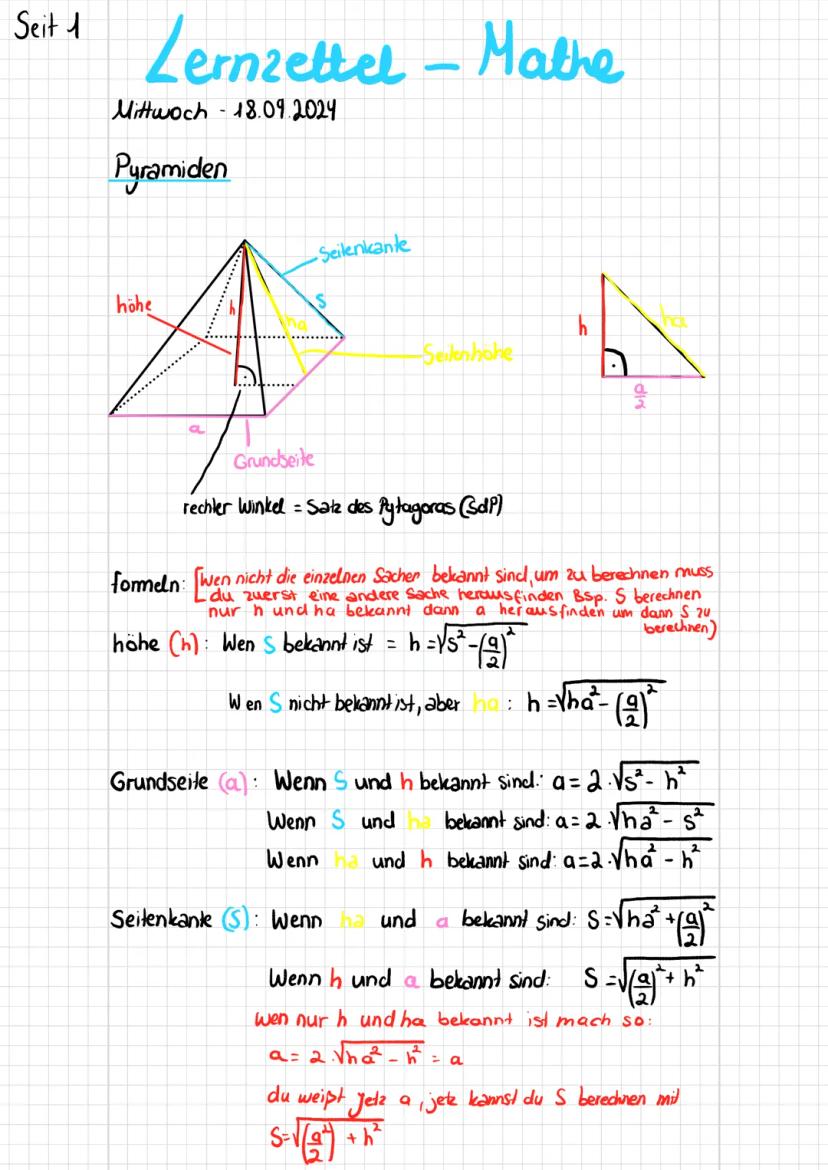 Seit 1
Lernzettel - Mathe
Mittwoch - 18.09.2024
Pyramiden
Seitenkante
höhe
h
s
ha
Seitenhöhe
a
Grundseite
h
ha
a/2
rechter Winkel = Satz des Pytagoras (SdP)
formeln: [wen nicht die einzelnen Sachen bekannt sind, um zu berechnen muss
du zuerst eine andere Sache herausfinden Bsp. S berechnen
nur h und ha bekannt dann a herausfinden um dann S zu
berechnen)
höhe (h): Wen S bekannt ist = h = √s² - (a/2)²
Wen S nicht bekannt ist, aber ha : h = √ha² - (a/2)²
Grundseite (a): Wenn S und h bekannt sind: a = 2 · √s² - h²
Wenn S und ha bekannt sind: a = 2 · √ha² - s²
Wenn ha und h bekannt sind: a = 2 · √ha² - h²
Seitenkante (S): Wenn ha und a bekannt sind: S = √ha² + (a/2)²
Wenn h und a bekannt sind: S = √(a/2)² + h²
wen nur h und ha bekannt ist mach so:
a = 2 · √ha² - h² = a
du weißt jetz a, jetz kannst du S berechnen mit
S = √(a²/2) + h²